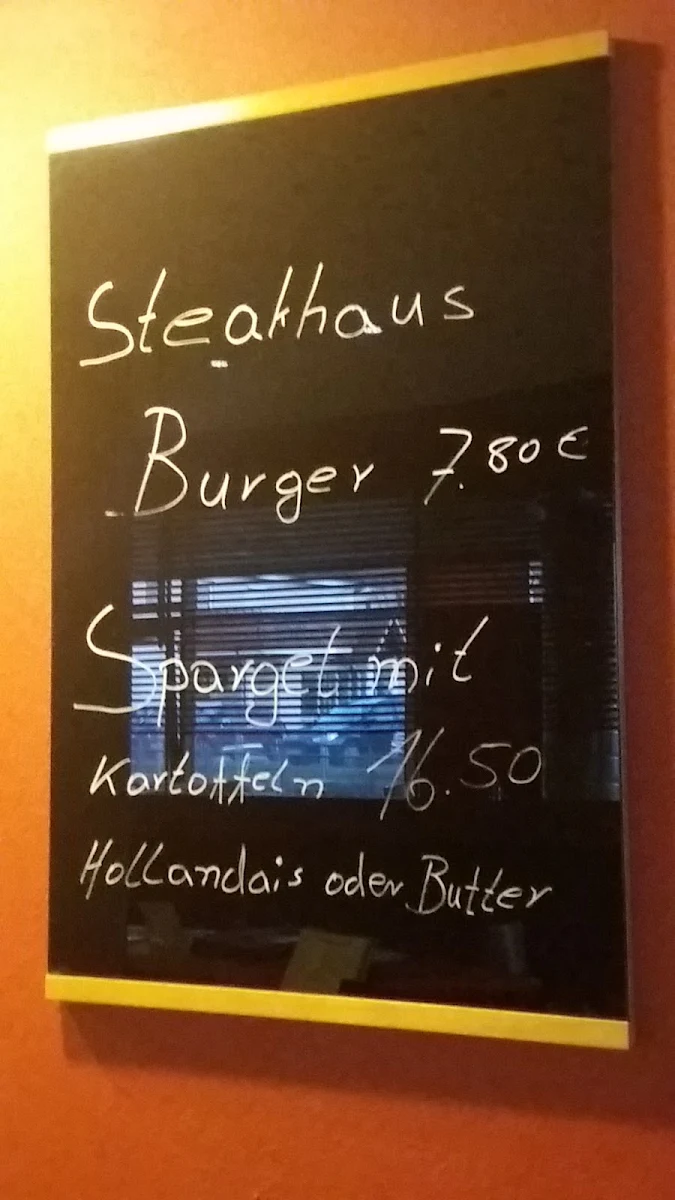 Steakhaus
Burger 7.80 €
Sparget mit
Kartoffeln 16.50
Hollandais oder Butter